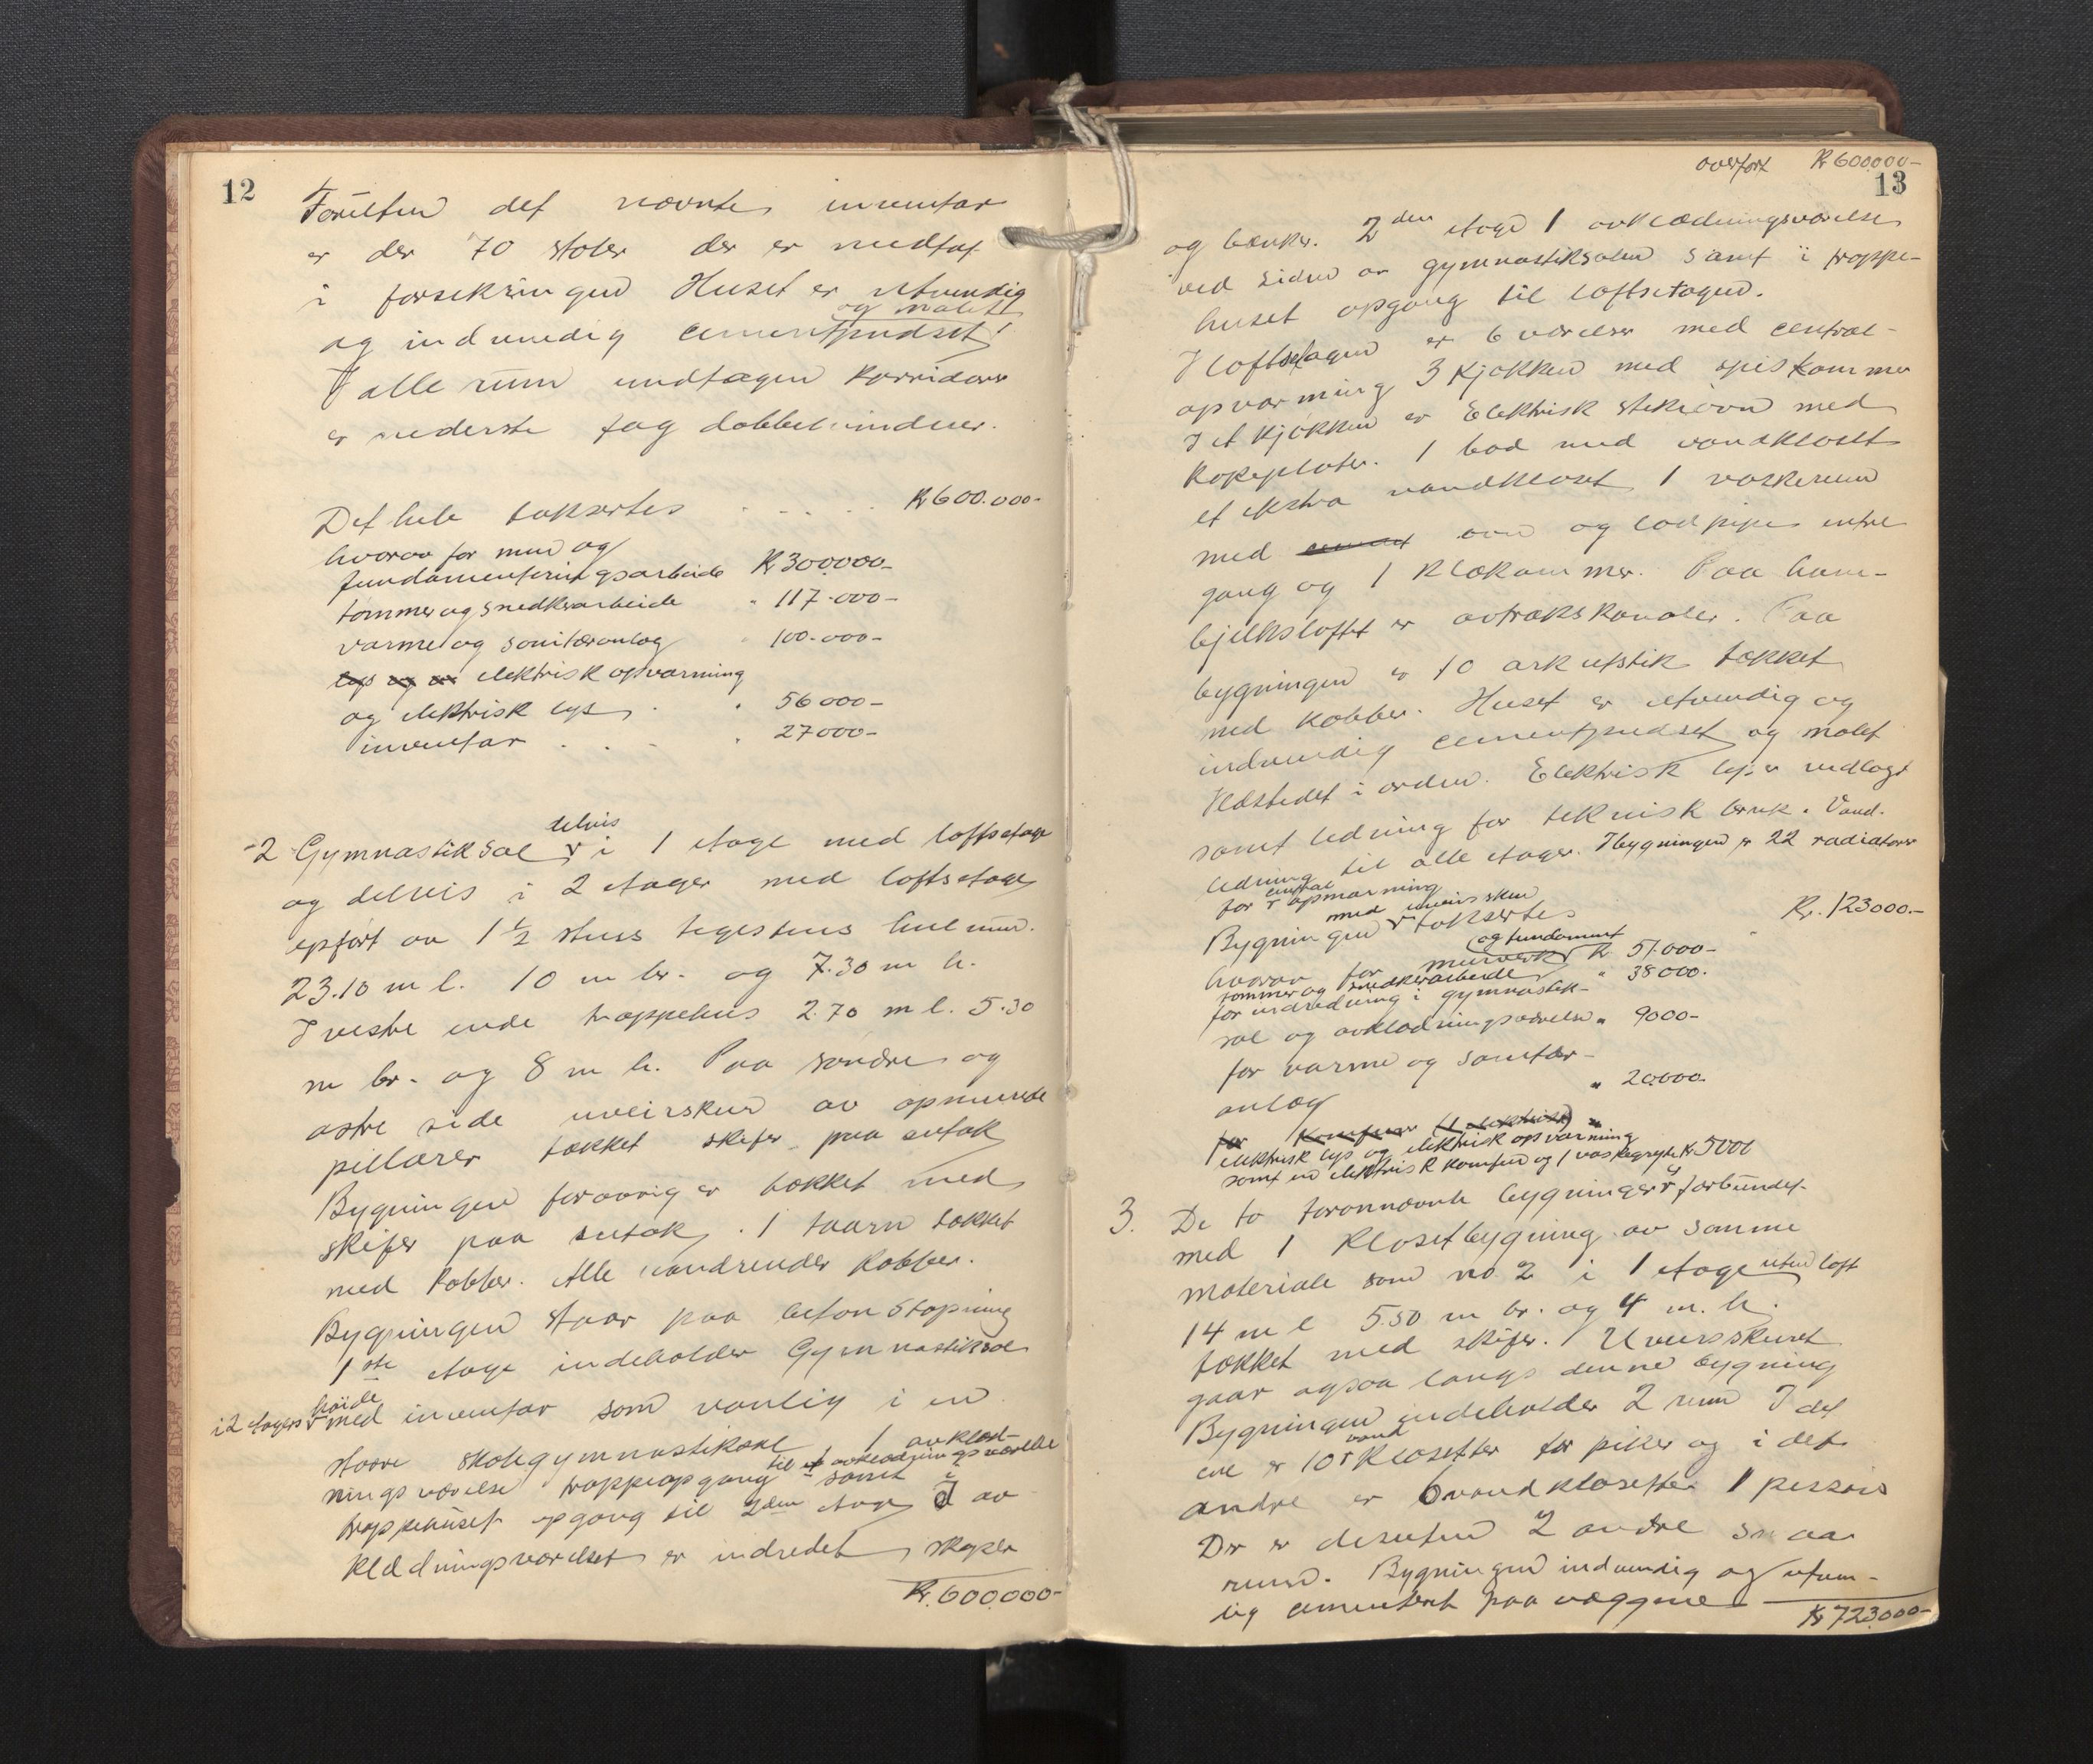 12
Foruten det nævnte inventar
er der 70 stoler der er medtat
i forsikringen Huset er utvendig
og malet
og indvendig cementpudset
I alle rum undtagen korridorer
er nederste fag dobbeltvinduer.
Det hele taksertes . . . . . Kr 600.000-
hvorav for mur og
fundamenteringsarbeide Kr 300.000-
tømmer og snedkerarbeide " 117.000-
varme og sanitæranlæg " 100.000-
elektrisk opvarming
og elektrisk lys . " 56000-
inventar . . . " 27000-
delvis
2 Gymnastiksal i 1 etage med loftsetage
og delvis i 2 etager med loftsetage
opført av 1½ stens teglstens hul mur.
23.10 m l. 10 m br. og 7.30 m h.
I vestre ende trappehus 2.70 m l. 5.30
m br. og 8 m h. Paa søndre og
østre side uveirskur av opmurede
pillarer tækket skifer paa sutak
Bygningen forøvrig er tækket med
skifer paa sutak. 1 taarn tækket
med kobber. Alle vandrender kobber.
Bygningen staar paa betonstøpning
1ste etage indeholder Gymnastiksal
i 2 etagers høide
med inventar som vanlig i en
større skolegymnastiksal 1 avklæd-
ningsværelse trappeopgang til avklædningsværelse samt i
trappehuset opgang til 2den etage I av
klædningsværelset er indredet skaper
Kr. 600.000-
overført Kr 600.000-
13
og bænker. 2den etage 1 avklædningsværelse
ved siden av gymnastiksalen samt i trappe-
huset opgang til loftsetagen.
I loftsetagen er 6 værelser med central-
opvarming 3 kjøkken med spiskammer
I et kjøkken er Elektrisk stekeovn med
kokeplater. 1 bad med vandklosett
et ekstra vandkloset 1 vaskerum
med ovn og lodpipe entre
gang og 1 klækammer. Paa hane-
bjelkeloftet er avtrækskanaler. Paa
bygningen er 10 ark utstik tækket
med kobber. Huset er utvendig og
indvendig cementpudset og malet
Ildstedet i orden. Elektrisk lys er indlagt
samt ledning for teknisk bruk. Vand-
ledning til alle etager. I bygningen er 22 radiatorer
for central opvarming
med uveirskur
Bygningen taksertes " Kr. 123000.-
hvorav for murverk og fundament Kr 51.000-
tømmer og snedkerarbeide " 38000.
for indredning i gymnastik-
sal og avklædningsværelse " 9000-
for varme og sanitær-
anlæg " 20000.
for komfur (1 elektrisk) "
elektrisk lys og elektrisk opvarming
samt en elektrisk komfur og 1 vaskegryte Kr 5000
3. De to forannævnte bygninger er forbundet
med 1 klosetbygning av samme
materiale som no 2 i 1 etage uten loft
14 m l 5.50 m br. og 4 m. h.
tækket med skifer. Uveirsskuret
gaar ogsaa langs denne bygning
Bygningen indeholder 2 rum I det
ene er 10 vand klosetter for piker og i det
andre er 6 vandklosetter 1 pissoir
Der er desuten 2 andre smaa
rum. Bygningen indvendig og utven-
dig cementert paa væggene
Kr 723.000-